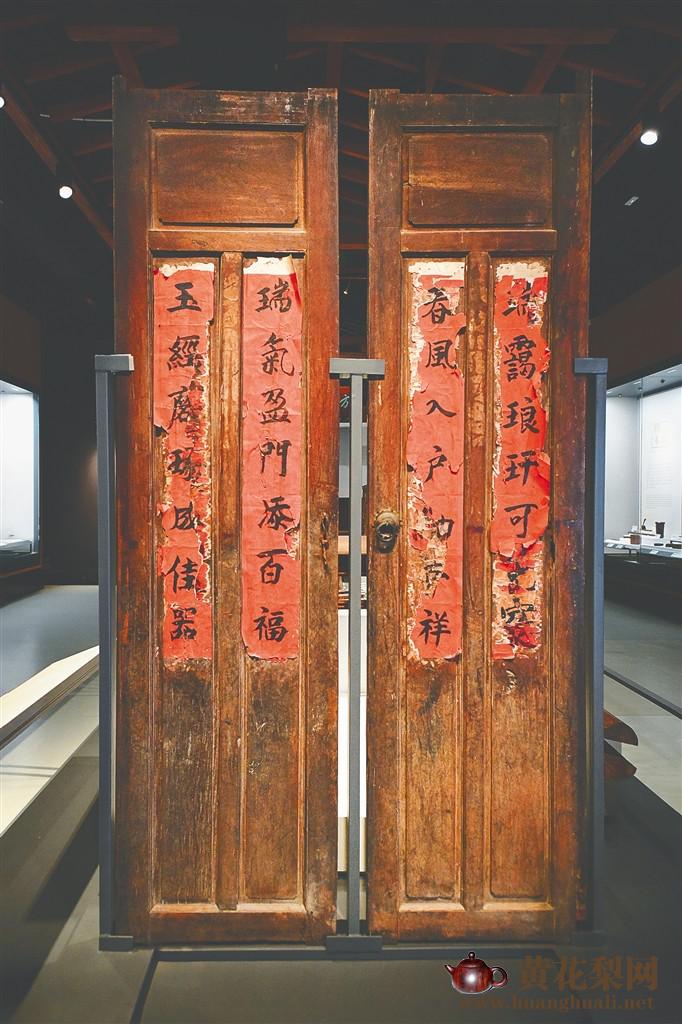 瑞靄琅玕可
春風入戶祥
瑞氣盈門添百福
玉經磨琢成佳器
方
黄花梨网
www.huanghuali.net